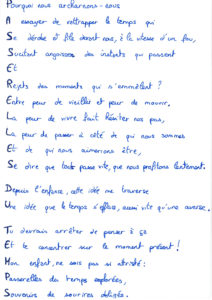 Pourquoi nous acharnons-nous
A essayer de rattrapper le temps qui
Se dérobe et file devant nous, à la vitesse d'un feu,
Suscitant angoisses des instants qui passent
Et
Rejets des moments qui s'emmêlent ?
Entre peur de vieillir et peur de mourir.
La peur de vivre fait hésiter nos pas,
La peur de passer à côté de qui nous sommes
Et de qui nous aimerions être,
Se dire que tout passe vite, que nous profitons lentement.
Depuis l'enfance, cette idée me traverse
Une idée que le temps s'efface, aussi vite qu'une averse.
Tu devrais arrêter de penser à ça
Et te concentrer sur le moment présent !
Mon enfant, ne sois pas si attristé :
Passerelles des temps explorées,
Souvenirs de sourires